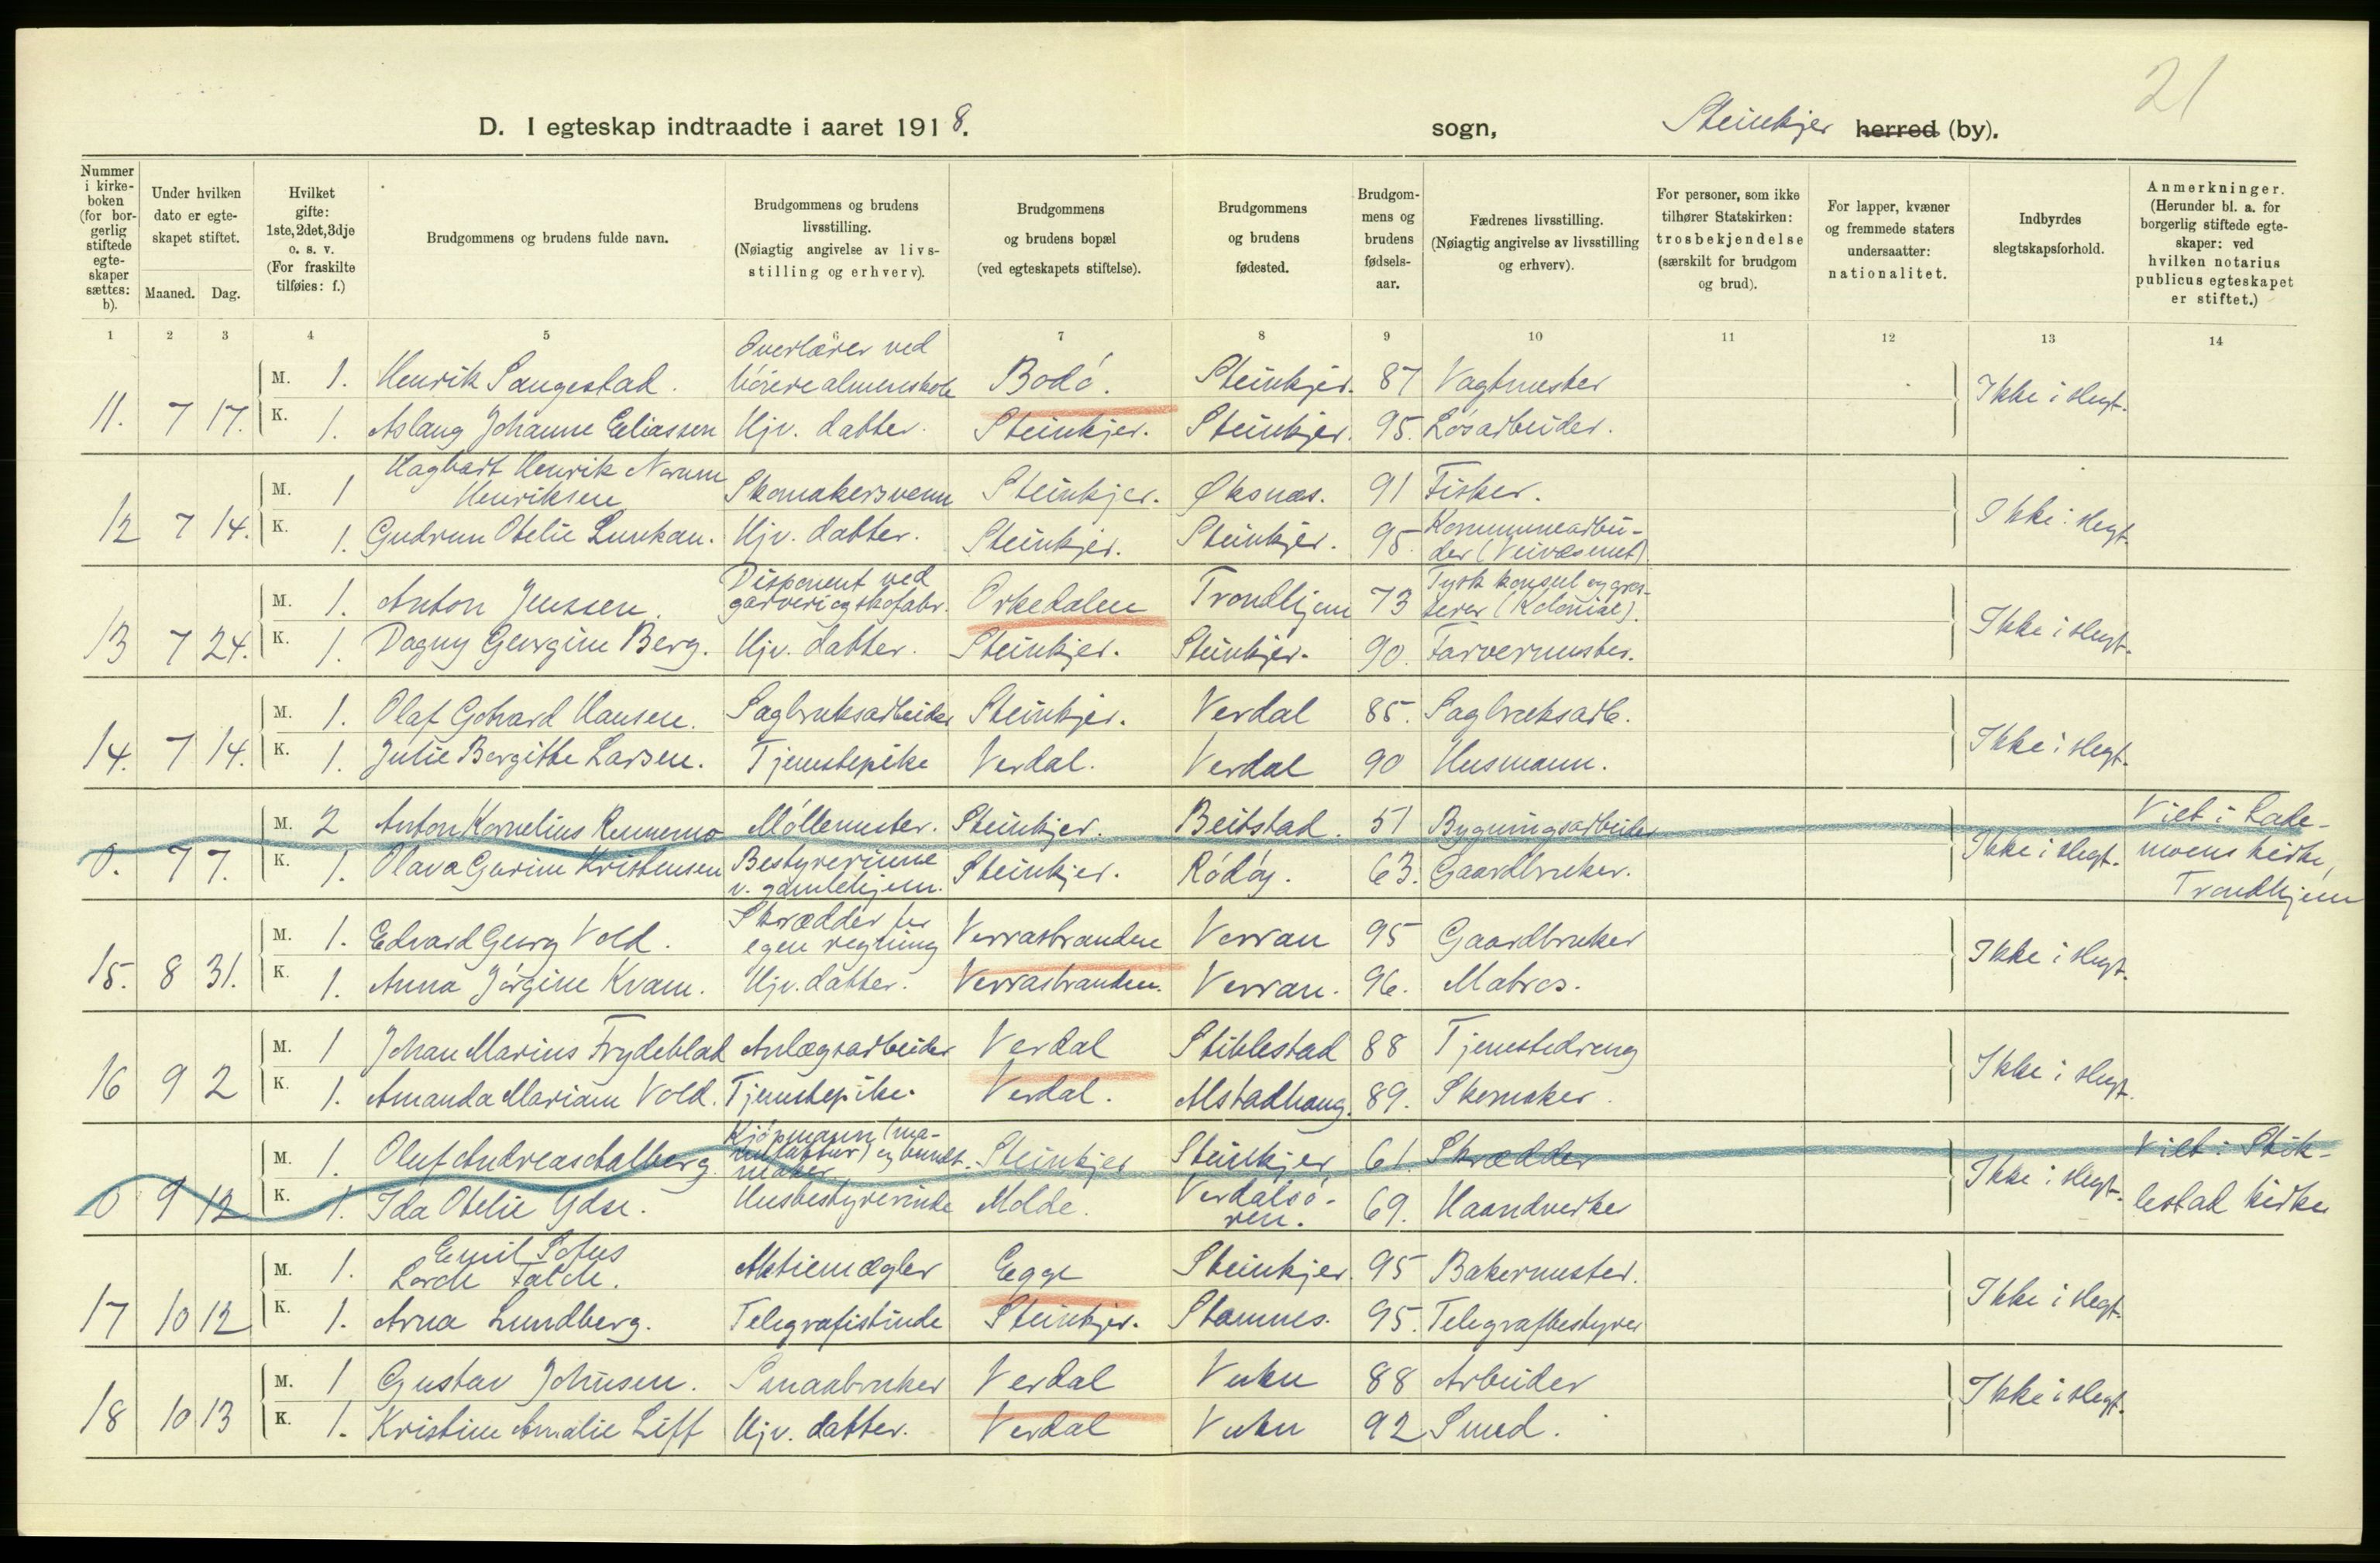 21
D. I egteskap indtraadte i aaret 1918. sogn, Steinkjer herred (by).
Nummer i kirke-boken (for bor-gerlig stiftede egte-skaper sættes: b).
Under hvilken dato er egte-skapet stiftet.
Maaned. Dag.
Hvilket gifte: 1ste, 2det, 3dje o. s. v. (For fraskilte tilføies: f.)
Brudgommens og brudens fulde navn.
Brudgommens og brudens livsstilling. (Nøiagtig angivelse av livs-stilling og erhverv).
Brudgommens og brudens bopæl (ved egteskapets stiftelse).
Brudgommens og brudens fødested.
Brudgom-mens og brudens fødsels-aar.
Fædrenes livsstilling. (Nøiagtig angivelse av livsstilling og erhverv).
For personer, som ikke tilhører Statskirken: trosbekjendelse (særskilt for brudgom og brud).
For lapper, kvæner og fremmede staters undersaatter: nationalitet.
Indbyrdes slegtskapsforhold.
Anmerkninger. (Herunder bl. a. for borgerlig stiftede egte-skaper: ved hvilken notarius publicus egteskapet er stiftet.)
1 2 3 4 5 6 7 8 9 10 11 12 13 14
M. 1. Henrik Sangestad. Overlærer ved höiere almenskole Bodö. Steinkjer. 87 Vagtmester
11. 7 17. K. 1. Aslaug Johanne Eliassen Hjv. datter. Steinkjer. Steinkjer. 95. Løsarbeider. Ikke i slegt.
M. 1 Hagbart Henrik Norum Henriksen Skomakersvenn Steinkjer. Øksnæs. 91 Fisker.
12 7 14. K. 1. Gudrun Otelie Lunkan. Hjv. datter. Steinkjer. Steinkjer. 95. Kommunearbei-der (Veivæsenet). Ikke i slegt.
M. 1. Anton Jenssen. Disponent ved garveri og skofabr. Orkedalen Trondhjem 73 Tysk konsul og gros-serer (Kolonial).
13 7 24. K. 1. Dagny Georgine Berg. Hjv. datter. Steinkjer. Steinkjer. 90. Farvermester. Ikke i slegt.
M. 1. Olaf Gothard Hansen. Sagbruksarbeider Steinkjer. Verdal 85. Sagbruksarb.
14. 7 14. K. 1. Julie Bergitte Larsen. Tjenestepike Verdal. Verdal 90 Husmann. Ikke i slegt.
M. 2 Anton Kornelius Rennemo Möllemester. Steinkjer. Beitstad. 51 Bygningsarbeider
0. 7 7. K. 1. Olava Gurine Kristensen Bestyrerinne v. gamlehjem. Steinkjer. Rödöy. 63. Gaardbruker. Ikke i slegt. Viet i Lade-moens kirke, Trondhjem
M. 1. Edvard Georg Vold. Skrædder for egen regning Verrastranden Verran 95 Gaardbruker
15. 8 31. K. 1. Anna Jörgine Kvam. Hjv. datter. Verrastranden. Verran. 96. Matros. Ikke i slegt.
M. 1 Johan Marius Frydeblad Anlægsarbeider Verdal Stiklestad 88 Tjenestedreng
16 9 2 K. 1. Amanda Mariane Vold. Tjenestepike. Verdal. Alstadhaug. 89. Skomaker. Ikke i slegt.
M. 1. Oluf Andreas Aalberg. Kjöpmann (ma-nufaktur) og bundt-maker Steinkjer Steinkjer 61. Skrædder
0 9 12 K. 1. Ida Otelie Ydse. Husbestyrerinde Molde. Verdalsö-ren. 69. Haandverker Ikke i slegt. Viet i Stik-lestad kirke
M. 1. Emil Sofus Lorck Falch. Aktiemægler Egge Steinkjer. 95 Bakermester.
17 10 12 K. 1. Arna Lundberg. Telegrafistinde Steinkjer. Stamnes. 95. Telegrafbestyrer Ikke i slegt.
M. 1 Gustav Johnsen. Smaabruker Verdal Vuku 88 Arbeider
18 10 13 K. 1. Kristine Amalie Liff Hjv. datter. Verdal Vuku 92 Smed. Ikke i slegt.